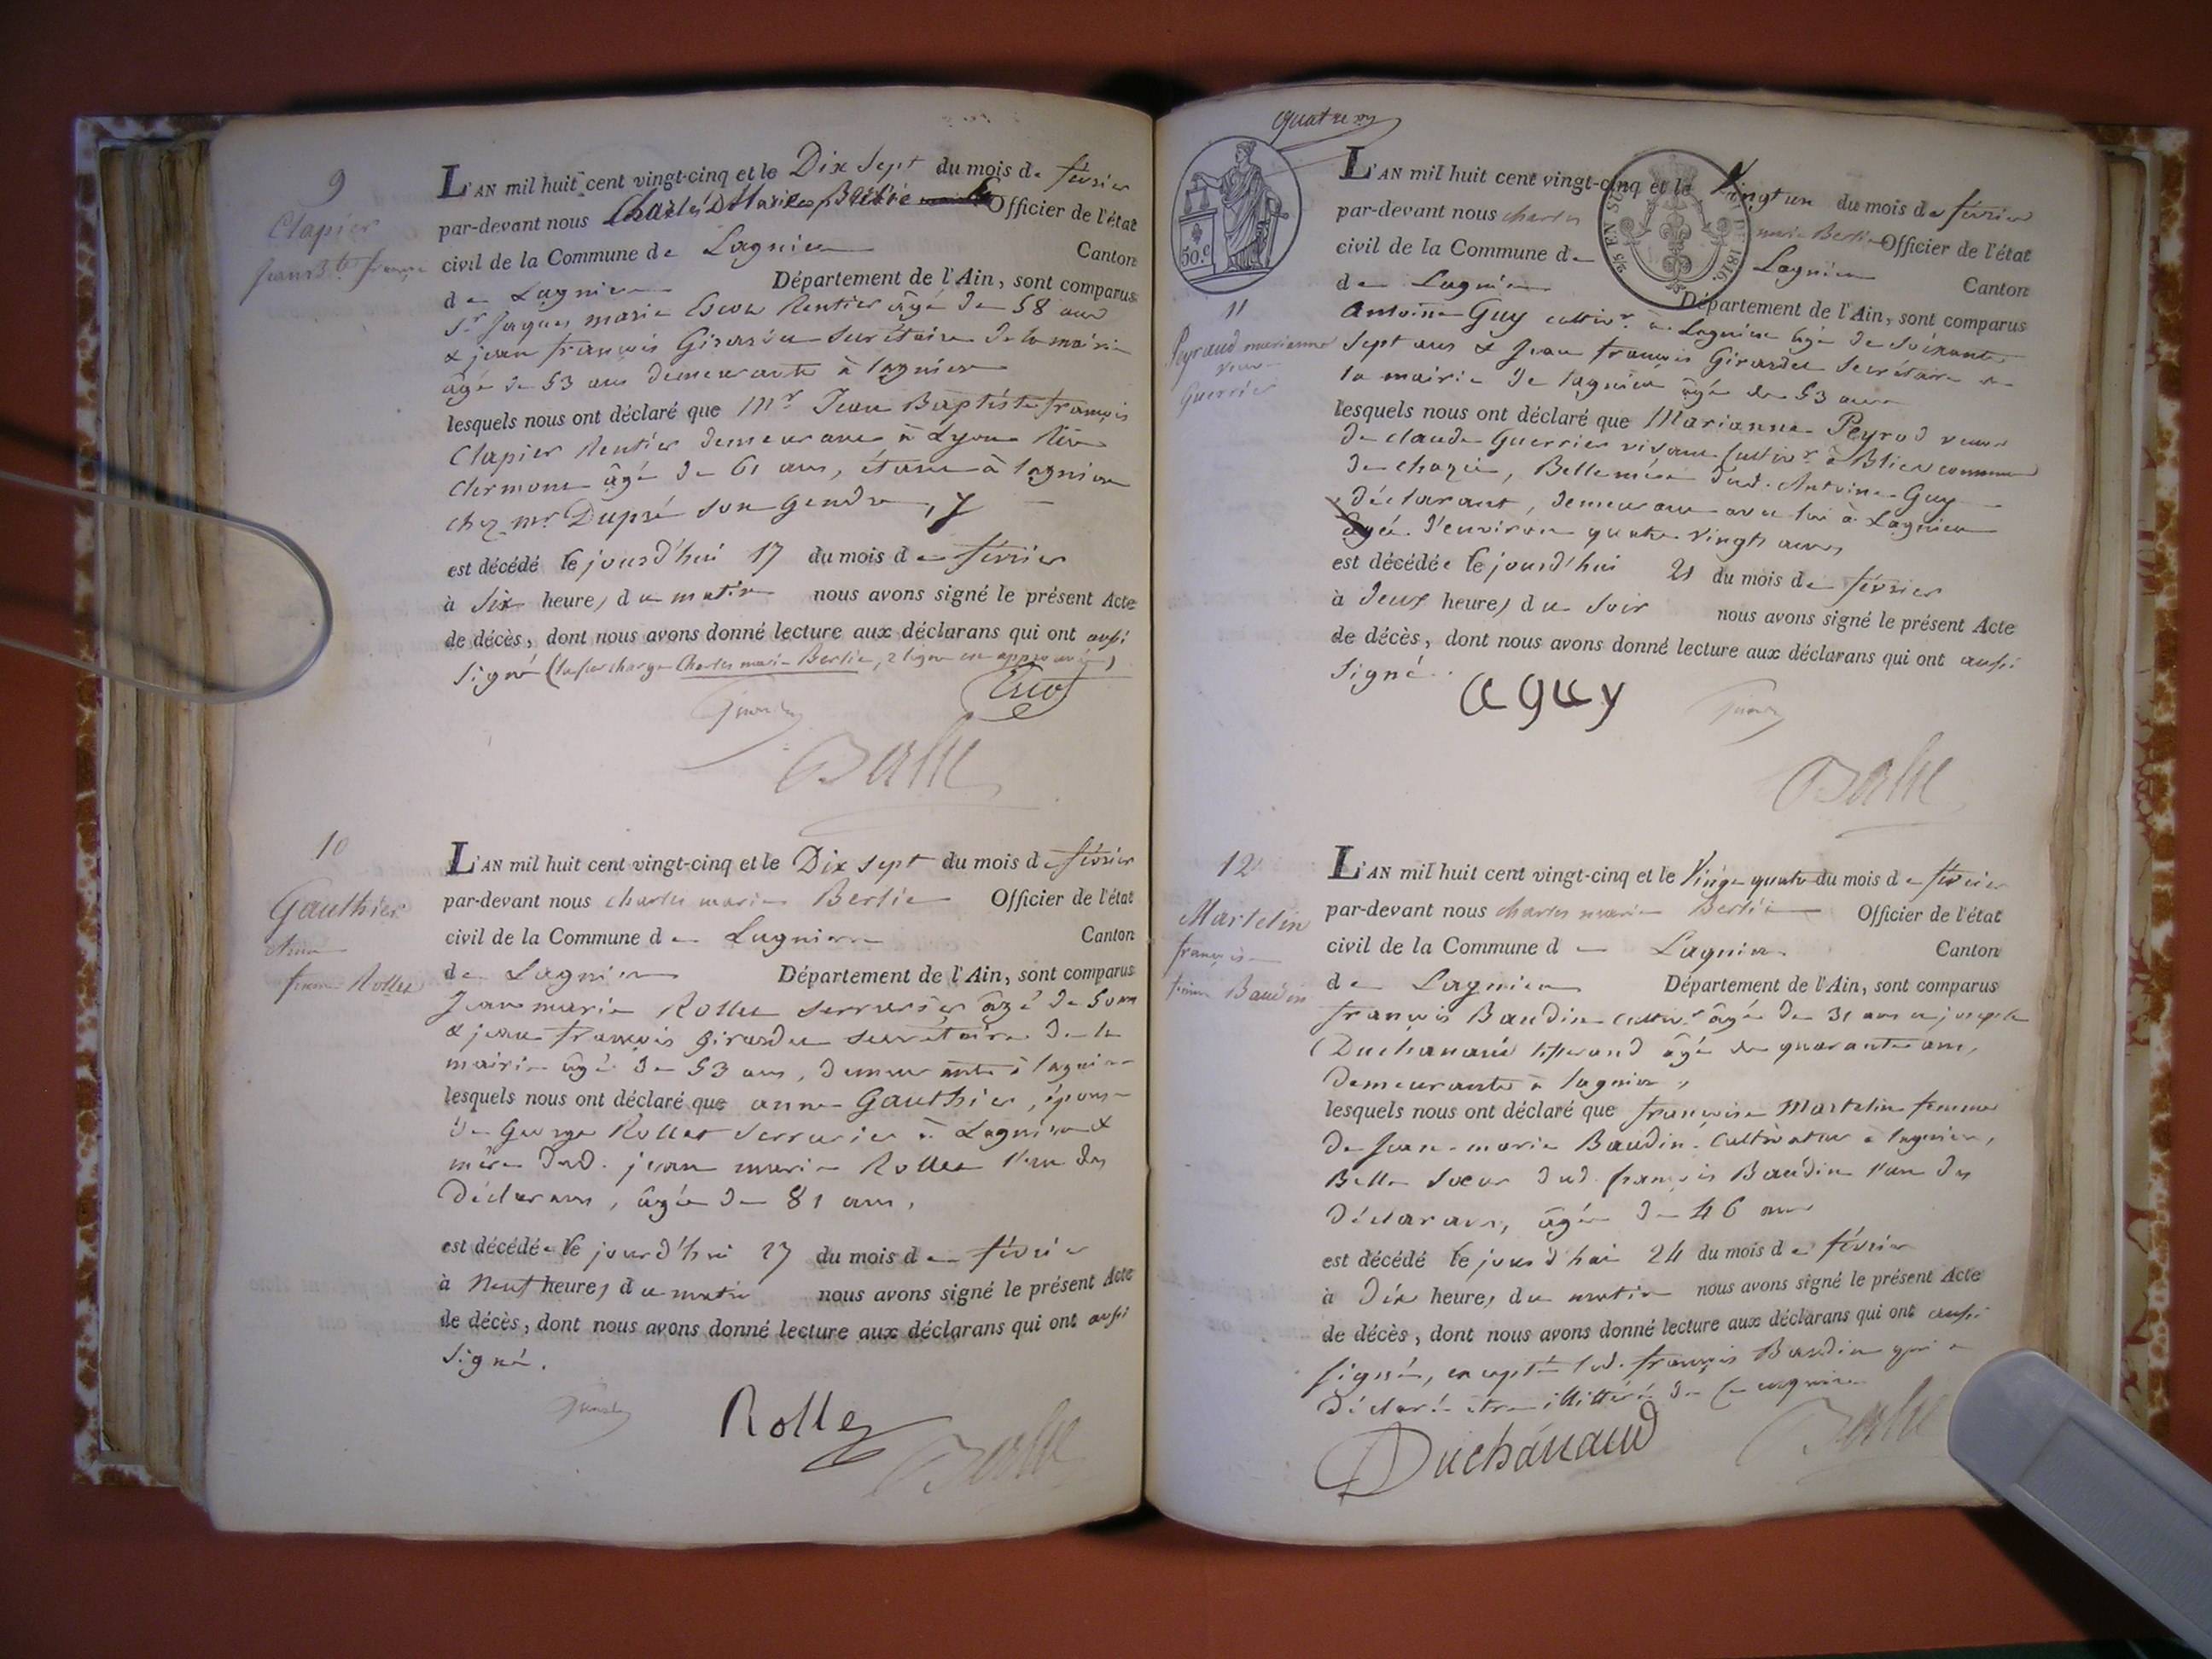 9
Clapier
jean B.te françois
L'AN mil huit cent vingt-cinq et le Dix Sept du mois de février
par-devant nous Charles Marie Berlie Officier de l'état
civil de la Commune de Lagnieu Canton
de Lagnieu Département de l'Ain, sont comparus
Sr. Jaques marie Escot Rentier âgé de 58 ans
& jean françois Girardin Secrétaire de la mairie
âgé de 53 ans demeurants à lagnieu
lesquels nous ont déclaré que Mr Jean Baptiste françois
Clapier Rentier demeurant à Lyon
Clermont âgé de 61 ans, étant à lagnieu
chez mr Dupré son gendre, y
est décédé le jourd'hui 17 du mois de février
à Six heures du matin nous avons signé le présent Acte
de décès, dont nous avons donné lecture aux déclarans qui ont aussi
Signé (la surcharge Charles marie Berlie, 2 ligne est approuvée)
Escot
Berlie
10
Gauthier
Anne
femme Rollet
L'AN mil huit cent vingt-cinq et le Dix Sept du mois de février
par-devant nous charles marie Berlie Officier de l'état
civil de la Commune de Lagnieu Canton
de Lagnieu Département de l'Ain, sont comparus
Jean marie Rollet Serrurier âgé de 50 ans
& jean françois Girardin secrétaire de la
mairie âgé de 53 ans, demeurants à lagnieu
lesquels nous ont déclaré que anne Gauthier, épouse
de George Rollet Serrurier à Lagnieu &
mère dud. jean marie Rollet l'un des
Déclarans, âgée de 81 ans,
est décédée le jourd'hui 17 du mois de février
à Neuf heures du matin nous avons signé le présent Acte
de décès, dont nous avons donné lecture aux déclarans qui ont aussi
Signé.
Rollet
Berlie
quatre
50.c
11
Peyraud marianne
veuve
Guerrier
L'AN mil huit cent vingt-cinq et le Vingt un du mois de février
par-devant nous charles marie Berlie Officier de l'état
civil de la Commune de Lagnieu Canton
de Lagnieu Département de l'Ain, sont comparus
Antoine Guy cultivr. à Lagnieu âgé de Soixante
Sept ans & Jean françois Girardin Secrétaire de
la mairie de lagnieu âgé de 53 ans
lesquels nous ont déclaré que Marianne Peyrod veuve
de claude Guerrier vivant Cultivr. à Blier commune
de chazey, Belle mère dud. Antoine Guy
déclarant, demeurant avec lui à Lagnieu
âgée d'environ quatre Vingts ans,
est décédée le jourd'hui 21 du mois de février
à Deux heures du Soir nous avons signé le présent Acte
de décès, dont nous avons donné lecture aux déclarans qui ont aussi
Signé.
a guy
Berlie
12
Martelin
françoise
femme Baudin
L'AN mil huit cent vingt-cinq et le Vingt quatre du mois de février
par-devant nous charles marie Berlie Officier de l'état
civil de la Commune de Lagnieu Canton
de Lagnieu Département de l'Ain, sont comparus
françois Baudin cultivr. âgé de 31 ans et joseph
Duchanaud âgé de quarante ans,
demeurants à lagnieu,
lesquels nous ont déclaré que françoise Martelin femme
de Jean-marie Baudin Cultivateur à lagnieu,
Belle Soeur dud. françois Baudin l'un des
Déclarans, âgée de 46 ans
est décédé le jourd'hui 24 du mois de février
à Dix heures du matin nous avons signé le présent Acte
de décès, dont nous avons donné lecture aux déclarans qui ont aussi
signé, excepté led. françois Baudin qui a
Déclaré être illittéré de ce enquis
Duchanaud
Berlie